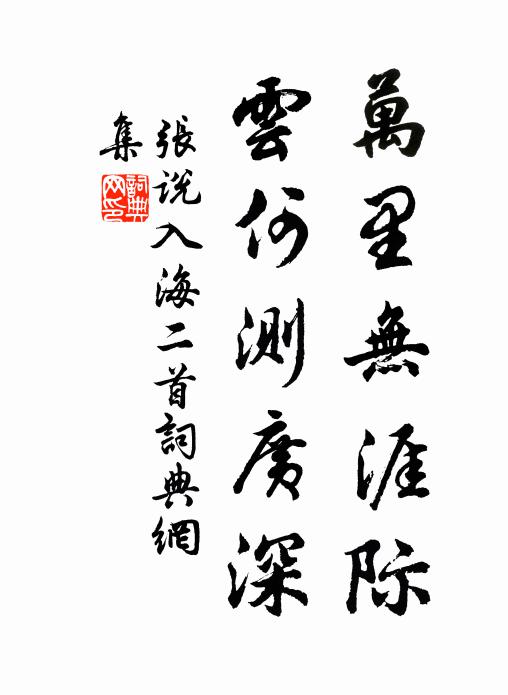 萬里無涯际
雲何測廣深
張說入海二首詞典網
集
詞典網印